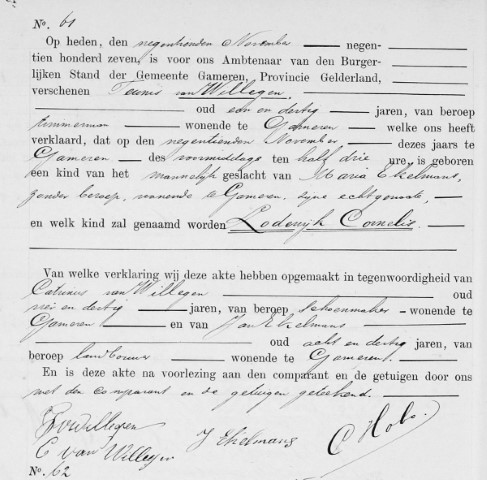 No. 61
Op heden, den negentienden November negen-
tien honderd zeven, is voor ons Ambtenaar van den Burger-
lijken Stand der Gemeente Gameren, Provincie Gelderland,
verschenen Teunis van Willegen,
oud een en dertig jaren, van beroep
timmerman wonende te Gameren welke ons heeft
verklaard, dat op den negentienden November dezes jaars te
Gameren des voormiddags ten half drie ure, is geboren
een kind van het mannelijk geslacht van Maria Ekelmans,
zonder beroep, wonende te Gameren, zijne echtgenoote,
en welk kind zal genaamd worden Lodewijk Cornelis.
Van welke verklaring wij deze akte hebben opgemaakt in tegenwoordigheid van
van Willegen oud
en dertig jaren, van beroep schoenmaker wonende te
Gameren en van Jan Ekelmans
oud acht en dertig jaren, van
beroep landbouwer wonende te Gameren.
En is deze akte na voorlezing aan den comparant en de getuigen door ons
met den comparant en de getuigen geteekend.
T v Willegen
C van Willegen J Ekelmans C Hobo.
No. 62